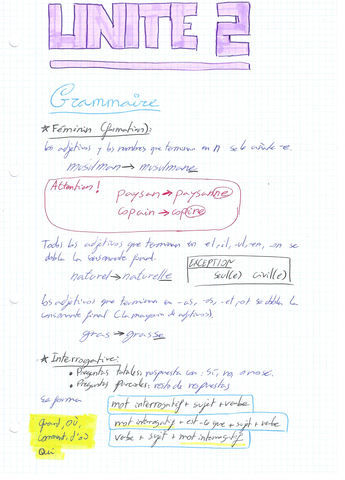 UNITE 2
Grammaire
* Féminin (formation):
Los adjetivos y los nombres que terminan en n se le añade -e.
musulman → musulmane
Attention!
paysan → paysanne
copain → copine
Todos los adjetivos que terminan en -el, -il, -ul, -en, -on se
dobla la consonante final.
naturel → naturelle
EXCEPTION
seul(e) civil(e)
Los adjetivos que terminan en -as, -os, -et, -ot se dobla la
consonante final (La mayoría de adjetivos).
gras → grasse
* Interrogative:
• Preguntas totales: respuesta con: sí, no, o no sé.
• Preguntas parciales: resto de respuestas
Se forma
mot interrogatif + sujet + verbe
mot interrogatif + est-ce que + sujet + verbe
verbe + sujet + mot interrogatif
Quand, où,
comment, d'où
Qui